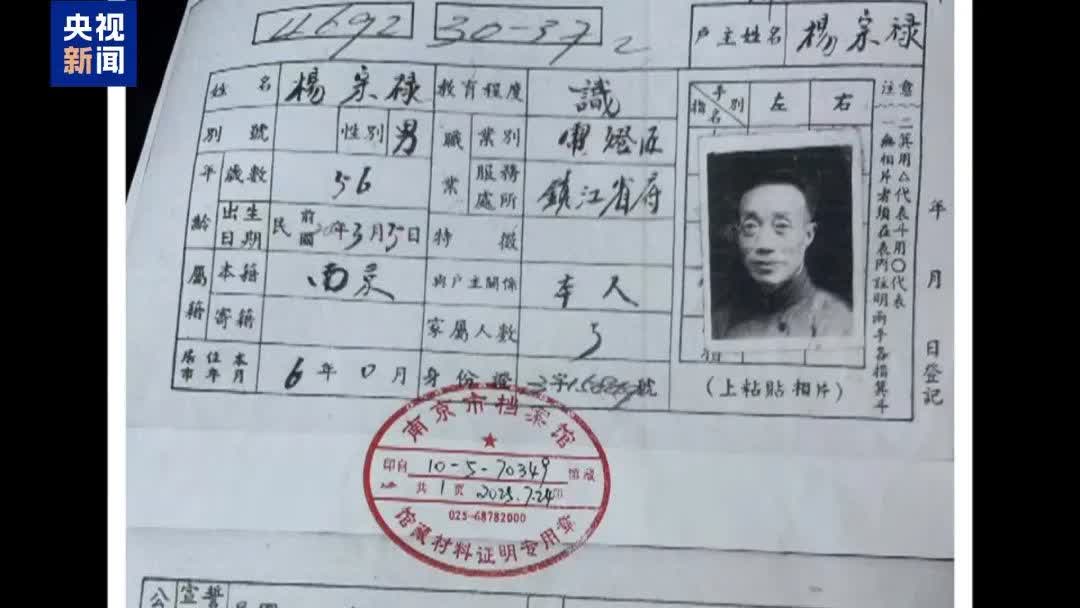 央视
新闻
4692 30-37 2 户主姓名 楊宗禄
姓名 楊宗禄 教育程度 識
別號 性別 男 職業 業別
年齡 歲數 56 服務處所 鎮江省府
出生日期 民前國 年3月 日 特徵
屬籍 本籍 南京 與戶主關係 本人
寄籍 家屬人數 5
居住本市年月 6年0月 身份證 字 號
手別 指名 左 右
(上粘貼相片)
注意
一 無相片者須在表內註明兩手各指箕斗
二 箕用△代表斗用〇代表
年 月 日登記
南京市档案馆
印自 10-5-70349 馆藏
共 1 页 2025.7.24印
025-68782000
馆藏材料证明专用章
公 宣誓